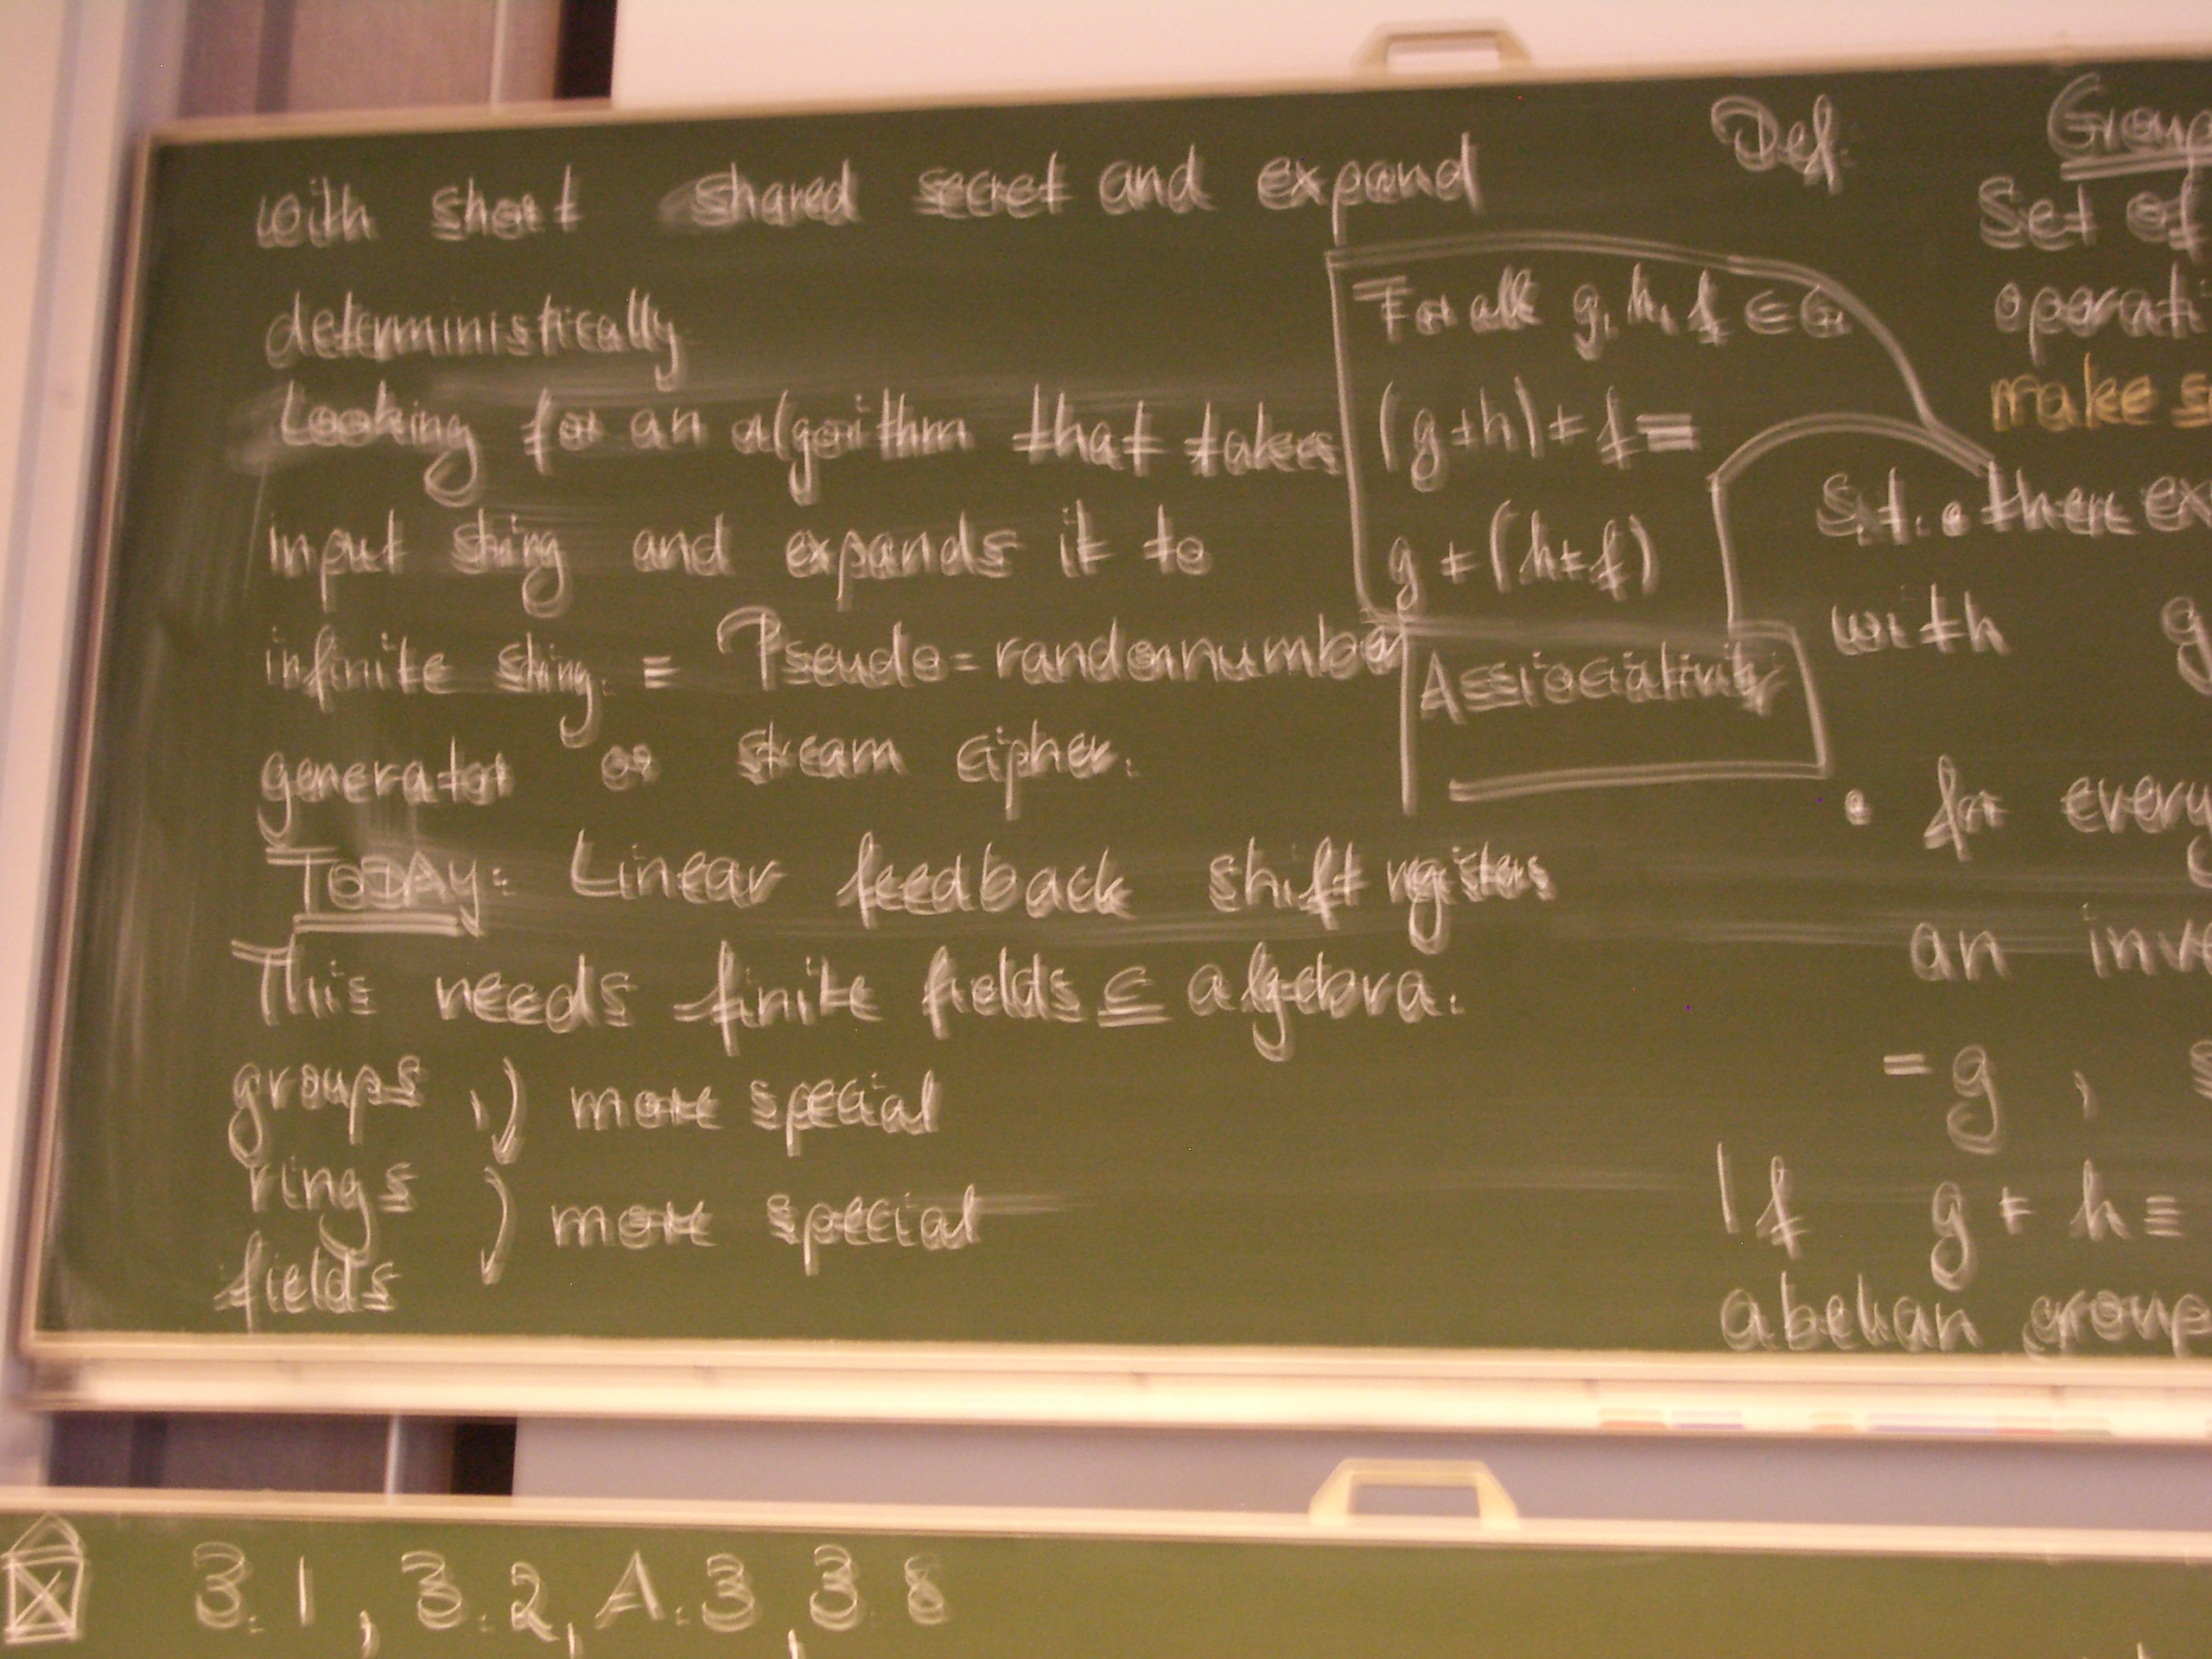 with short shared secret and expand
deterministically
Looking for an algorithm that takes
input string and expands it to
infinite string. = Pseudo-randomnumber
generator or stream cipher.
TODAY: Linear feedback shift registers
This needs finite fields ⊆ algebra.
groups , ) more special
rings ) more special
fields
For all g, h, f ∈ G
(g+h)+f =
g+(h+f)
Assiociativity
Def: Group
Set of
operati
make s
s.t. • there ex
with g
• for every
an inve
= g , s
If g + h =
abelian group
3.1, 3.2, A.3, 3.8